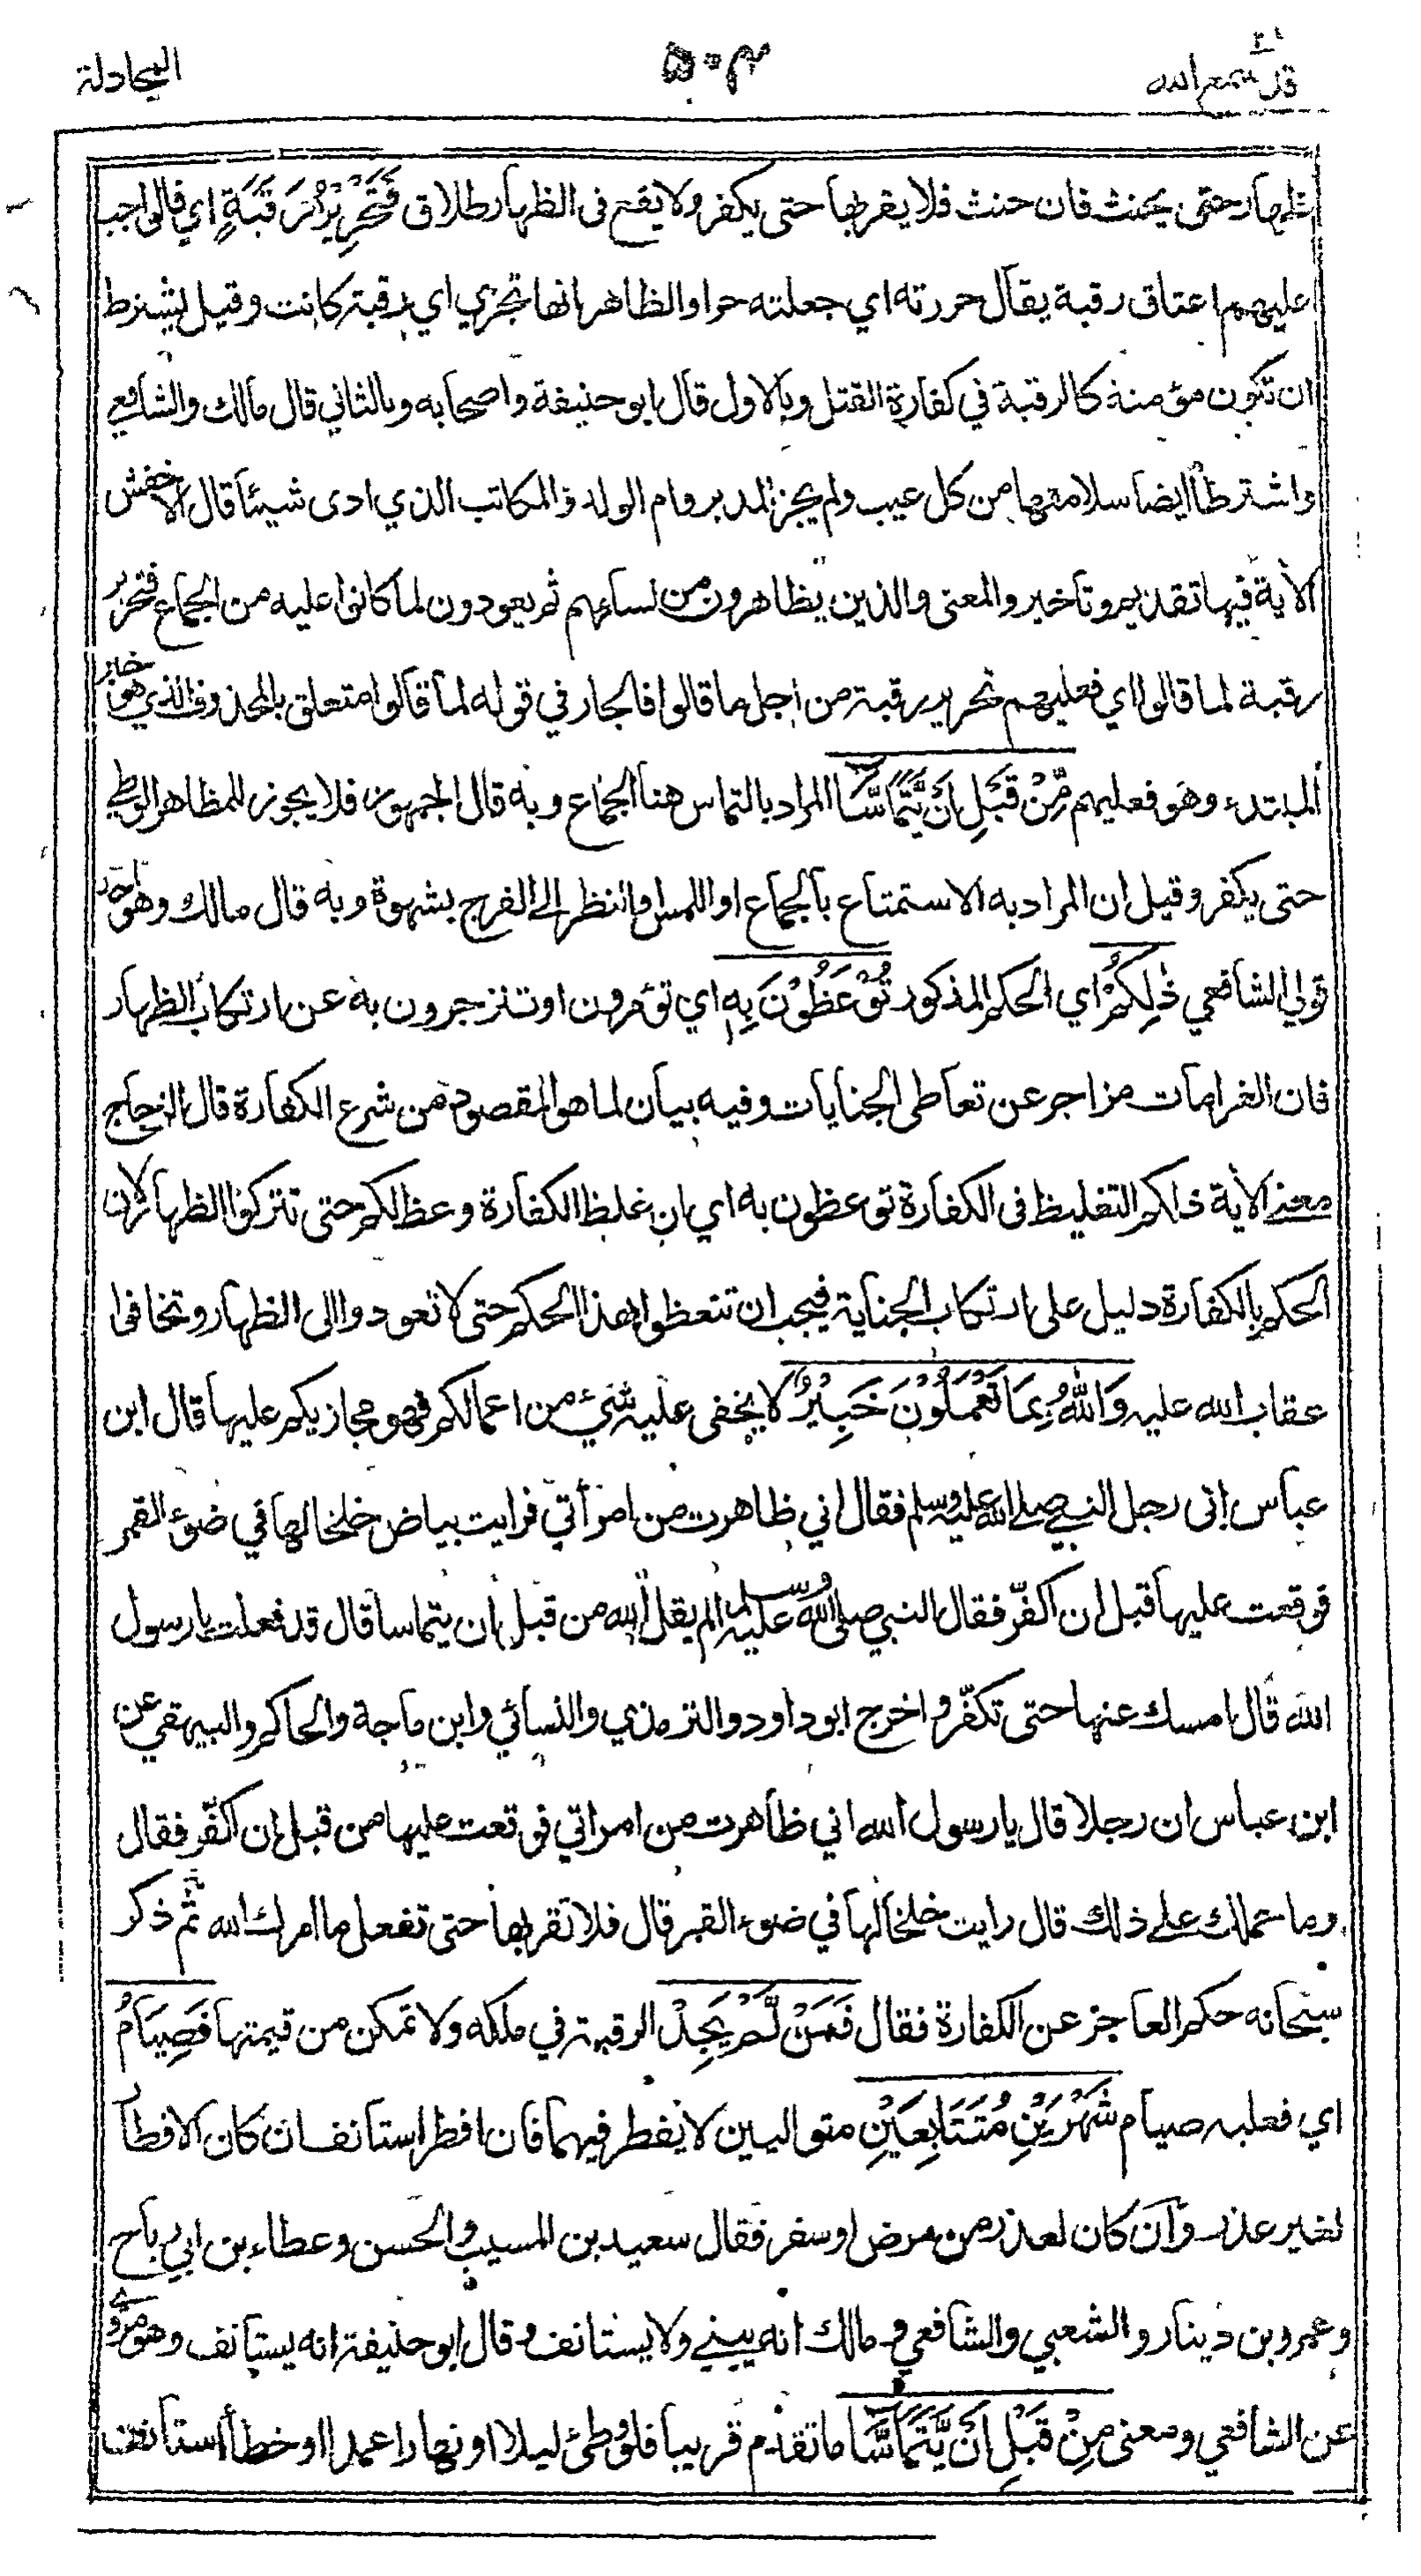 قد سمع الله ٢٨
٥٠٣
المجادلة
ظهار حتى يحنث فان حنث فلا يقربها حتى يكفر ولا يقع في الظهار طلاق فَتَحْرِيْرُ رَقَبَةٍ اي فالواجب
عليهم اعتاق رقبة يقال حررته اي جعلته حرا والظاهر انها تجزي اي رقبة كانت وقيل يشترط
ان تكون مؤمنة كالرقبة في كفارة القتل وبالاول قال ابو حنيفة واصحابه وبالثاني قال مالك والشافعي
واشترطا ايضا سلامتها من كل عيب ولم يجز المدبر وام الولد والمكاتب الذي ادى شيئا قال الاخفش
الاية فيها تقديم وتأخير والمعنى والذين يظاهرون من نساءهم ثم يعودون لما كانوا عليه من الجماع فتحرير
رقبة لما قالوا اي فعليهم تحرير رقبة من اجل ما قالوا فالجار في قوله لما قالوا متعلق بالمحذوف الذي هو خبر
المبتدء وهو فعليهم مِّنْ قَبْلِ اَنْ يَّتَمَاسَّا المراد بالتماس هنا الجماع وبه قال الجمهور فلا يجوز للمظاهر الوطي
حتى يكفر وقيل ان المراد به الاستمتاع بالجماع او اللمس والنظر الى الفرج بشهوة وبه قال مالك وهو احد
قولي الشافعي ذٰلِكُمْ اي الحكم المذكور تُوْعَظُوْنَ بِهٖ اي تؤمرون او تنزجرون به عن ارتكاب الظهار
فان الغرامات مزاجر عن تعاطي الجنايات وفيه بيان لما هو المقصود من شرع الكفارة قال الزجاج
معنى الاية ذلكم التغليظ في الكفارة توعظون به اي ان غلظ الكفارة وعظ لكم حتى تتركوا الظهار لان
الحكم بالكفارة دليل على ارتكاب الجناية فيجب ان تتعظوا بهذا الحكم حتى لا تعودوا الى الظهار وتخافوا
عقاب الله عليه وَاللّٰهُ بِمَا تَعْمَلُوْنَ خَبِيْرٌ لا يخفى عليه شيء من اعمالكم فهو مجازيكم عليها قال ابن
عباس اتى رجل النبي صلى الله عليه وسلم فقال اني ظاهرت من امرأتي فرايت بياض خلخالها في ضوء القمر
فوقعت عليها قبل ان اكفّر فقال النبي صلى الله عليه وسلم الم يقل الله من قبل ان يتماسا قال قد فعلت يا رسول
الله قال امسك عنها حتى تكفّر واخرج ابو داود والترمذي والنسائي وابن ماجة والحاكم والبيهقي عن
ابن عباس ان رجلا قال يا رسول الله اني ظاهرت من امراتي فوقعت عليها من قبل ان اكفّر فقال
وما حملك على ذلك قال رايت خلخالها في ضوء القمر قال فلا تقربها حتى تفعل ما امرك الله ثم ذكر
سبحانه حكم العاجز عن الكفارة فقال فَمَنْ لَّمْ يَجِدْ الرقبة في ملكه ولا تمكن من قيمتها فَصِيَامُ
اي فعليه صيام شَهْرَيْنِ مُتَتَابِعَيْنِ متواليين لا يفطر فيهما فان افطر استانف ان كان الافطار
لغير عذر وان كان لعذر من مرض او سفر فقال سعيد بن المسيب والحسن وعطاء بن ابي رباح
وعمرو بن دينار والشعبي والشافعي ومالك انه يبني ولا يستانف وقال ابو حنيفة انه يستانف وهو مروي
عن الشافعي ومعنى مِنْ قَبْلِ اَنْ يَّتَمَاسَّا ما تقدم قريبا فلو وطئ ليلا او نهارا عمدا او خطأ استانف